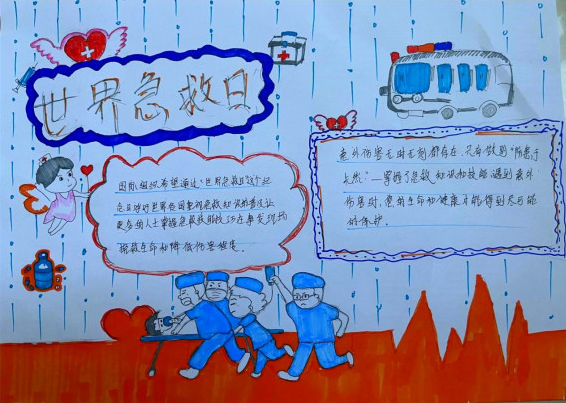 世界急救日
国际组织希望通过“世界急救日”这个纪
念日呼吁世界各国重视急救知识的普及让
更多的人士掌握急救技能技巧在事发现场
挽救生命和降低伤害程度.
意外伤害无时无刻都存在,只有做到“防患于
未然”——掌握了急救知识和技能遇到意外
伤害时,您的生命和健康才能得到尽可能
的保护.